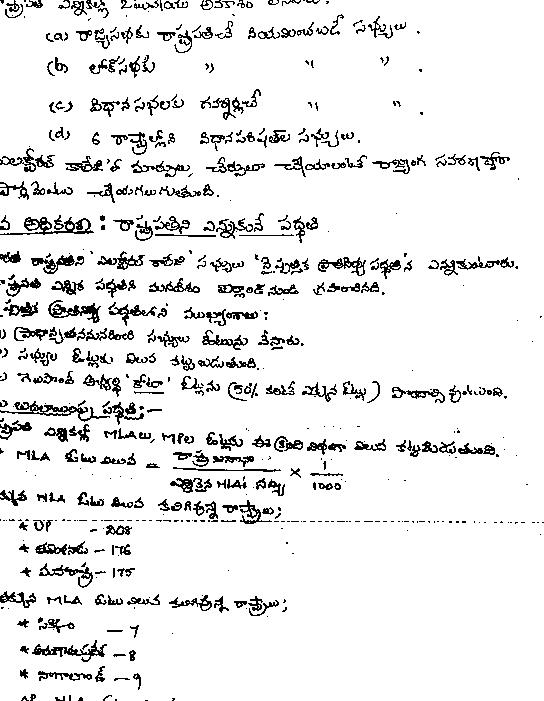 ఎన్నికల్లో ఓటువేయు అవకాశం లేనివారు:
(a) రాజ్యసభకు రాష్ట్రపతిచే నియమించబడే సభ్యులు.
(b) లోక్‌సభకు " " " .
(c) విధానసభలకు గవర్నర్లచే " " .
(d) 6 రాష్ట్రాల్లోని విధానపరిషత్‌ల సభ్యులు.
కాలేజీ'లో మార్పులు, చేర్పులూ చేయాలంటే రాజ్యాంగ సవరణ ద్వారా
చేయగలుగుతుంది.
అధికరణ : రాష్ట్రపతిని ఎన్నుకునే పద్ధతి
రాష్ట్రపతిని 'ఎలక్టోరల్ కాలేజీ' సభ్యులు 'నైష్పత్తిక ప్రాతినిధ్య పద్ధతి'న ఎన్నుకుంటారు.
ఎన్నిక పద్ధతిని ఐర్లాండ్ నుండి గ్రహించినది.
ప్రాతినిధ్య పద్ధతిలోని ముఖ్యాంశాలు:
సభ్యులు ఓటును వేస్తారు.
సభ్యుల ఓట్లకు విలువ కట్టబడుతుంది.
గెలుపొందే అభ్యర్థి 'కోటా' ఓట్లను (50% కంటే ఎక్కువ ఓట్లు) పొందాల్సి వుంటుంది.
బదలాయింపు పద్ధతి:-
ఎన్నికల్లో MLAలు, MPల ఓట్లను ఈ క్రింది విధంగా విలువ కట్టబడుతుంది.
* MLA ఓటు విలువ = రాష్ట్ర జనాభా / ఎన్నికైన MLAల సంఖ్య × 1/1000
MLA ఓటు విలువ కలిగివున్న రాష్ట్రాలు;
* UP - 208
* తమిళనాడు - 176
* మహారాష్ట్ర - 175
MLA ఓటు విలువ కలిగివున్న రాష్ట్రాలు;
* సిక్కిం - 7
* అరుణాచల్‌ప్రదేశ్ - 8
* నాగాలాండ్ - 9